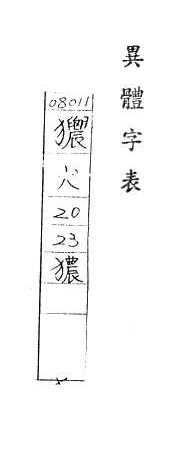 異體字表
08011
20
23
㺜